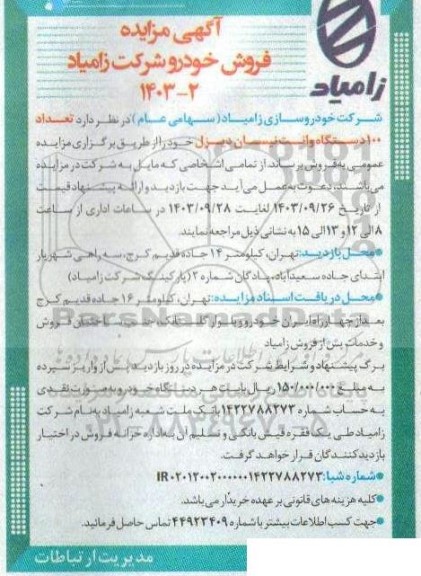 آگهی مزایده
فروش خودرو شرکت زامیاد
۱۴۰۳-۲
زامیاد
شرکت خودروسازی زامیاد (سهامی عام) در نظر دارد تعداد
۱۰۰ دستگاه وانت نیسان دیزل خود را از طریق برگزاری مزایده
عمومی به فروش برساند. از تمامی اشخاصی که مایل به شرکت در مزایده
می‌باشند، دعوت به عمل می‌آید جهت بازدید و ارائه پیشنهاد قیمت
از تاریخ ۱۴۰۳/۰۹/۲۶ لغایت ۱۴۰۳/۰۹/۲۸ در ساعات اداری از ساعت
۸ الی ۱۲ و ۱۳ الی ۱۵ به نشانی ذیل مراجعه نمایند.
محل بازدید: تهران، کیلومتر ۱۴ جاده قدیم کرج، سه راهی شهریار
ابتدای جاده سعیدآباد، پادگان شماره ۲ (پارکینگ شرکت زامیاد)
محل دریافت اسناد مزایده: تهران، کیلومتر ۱۶ جاده قدیم کرج
بعد از چهارراه ایران خودرو و بلوار گلستانک، جنب ساختمان فروش
و خدمات پس از فروش زامیاد
برگ پیشنهاد و شرایط شرکت در مزایده در روز بازدید پس از واریز سپرده
به مبلغ ۱۵۰/۰۰۰/۰۰۰ ریال بابت هر دستگاه خودرو به صورت نقدی
به حساب شماره ۱۴۲۲۷۸۸۲۷۳ بانک ملت شعبه زامیاد به نام شرکت
زامیاد طی یک فقره فیش بانکی و تسلیم آن به اداره خزانه فروش در اختیار
بازدیدکنندگان قرار خواهد گرفت.
شماره شبا: IR۰۲۰۱۲۰۰۲۰۰۰۰۰۰۱۴۲۲۷۸۸۲۷۳
کلیه هزینه‌های قانونی بر عهده خریدار می‌باشد.
جهت کسب اطلاعات بیشتر با شماره ۴۴۹۲۳۴۰۹ تماس حاصل فرمائید.
مدیریت ارتباطات
ParsNamadData